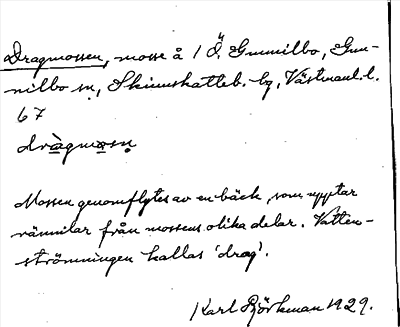 Dragmossen, mosse å 1 Ö. Gunnilbo, Gun-
nilbo sn, Skinnskatteb. bg, Västmanl. l.
67
dràgmọsn̥
Mossen genomflytes av en bäck, som upptar
rännilar från mossens olika delar. Vatten-
strömningen kallas 'drag'.
Karl Björkman 1929.